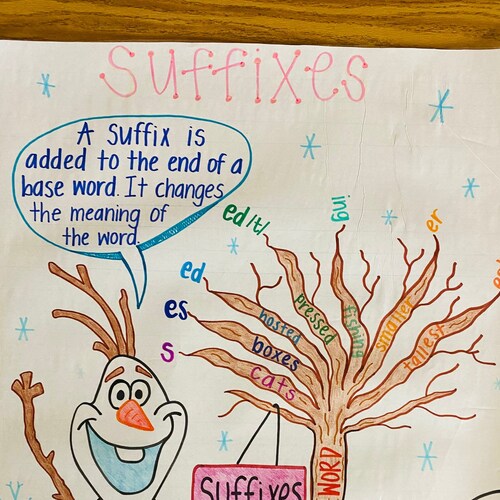 suffixes
A suffix is
added to the end of a
base word. It changes
the meaning of
the word.
ed /t/
ing
er
ed
es
s
pressed
fishing
smaller
tallest
hosted
boxes
cats
WORD
Suffixes